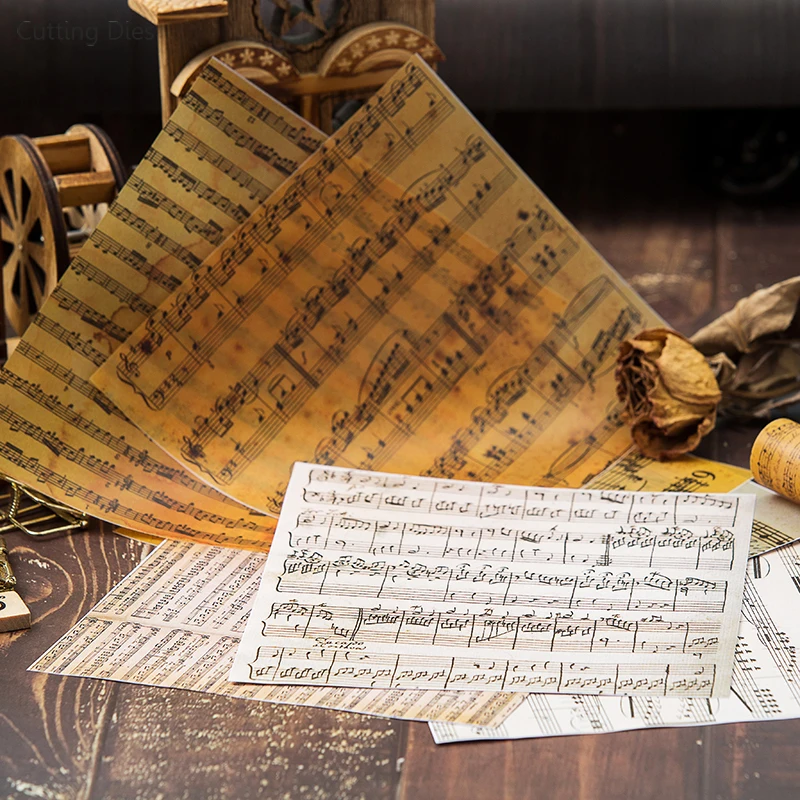 Cutting Dies